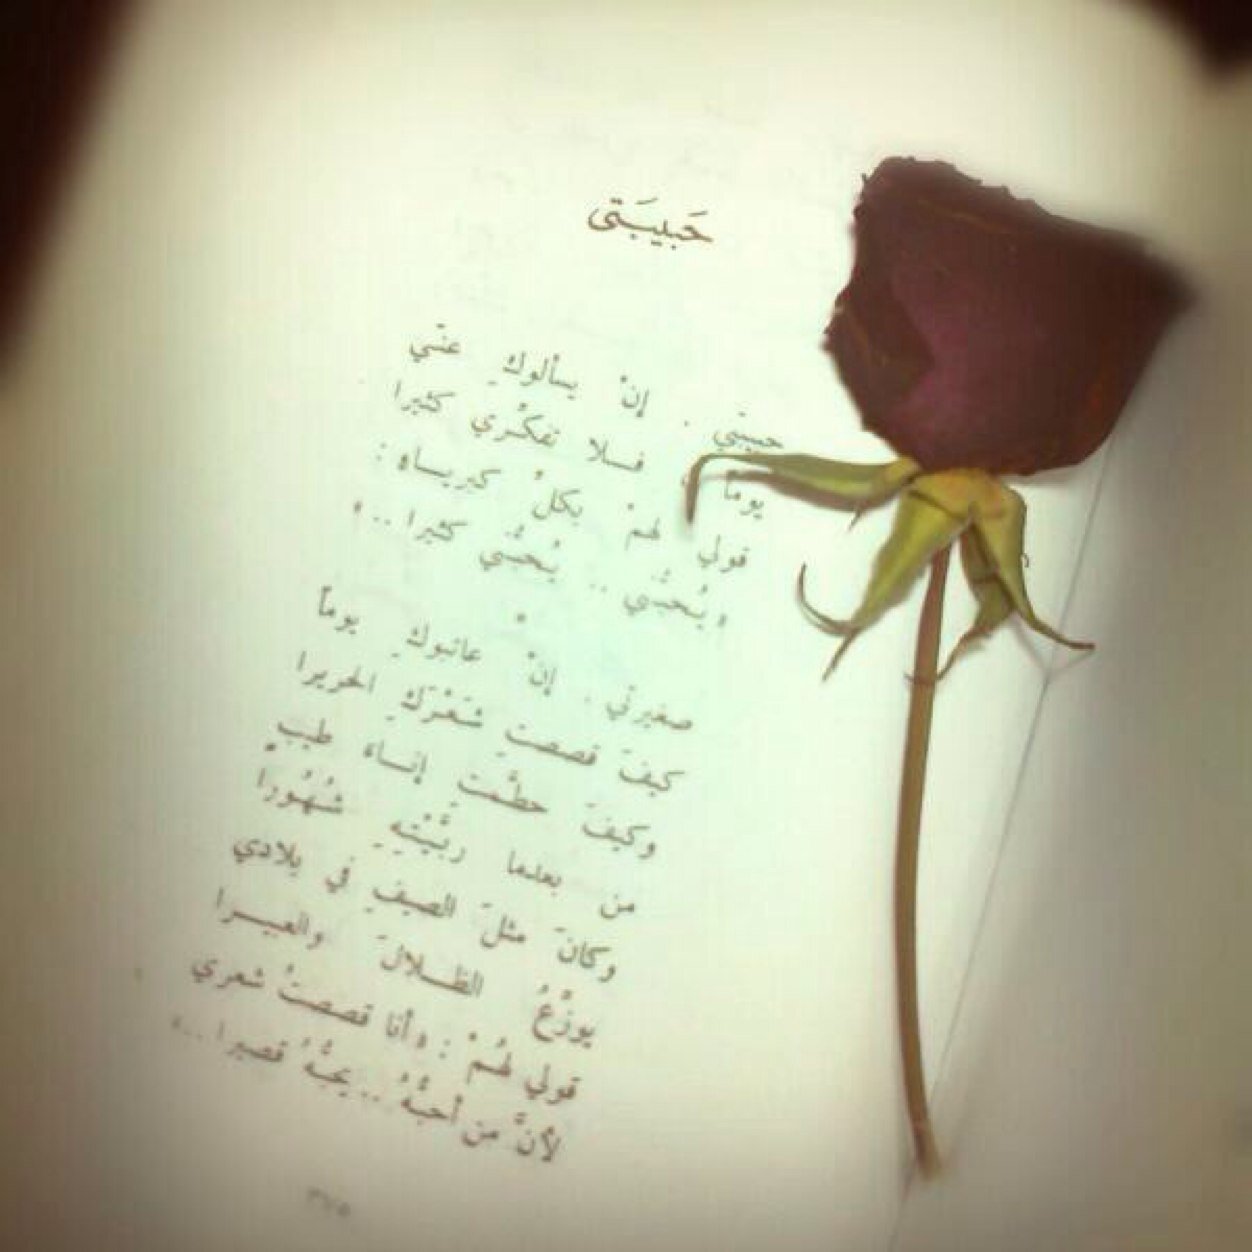 حَبيبَتى
حبيبتي . إنْ يسألوكِ عنّي
يوماً فـلا تفكّـري كثيرا
قولي لهمْ بكلّ كبريـاءٍ :
« يُحبّني .. يُحبّني كثيرا .. »
*
صغيرتي . إنْ عاتبوكِ يوماً
كيفَ قصصتِ شَعْرَكِ الحريرا
وكيفَ حطَّمتِ إنـاءَ طيبٍ
من بعدما ربَّيْتِهِ شُهُورا
وكانَ مثلَ الصيفِ في بلادي
يوزّعُ الظـلالَ والعبيـرا
قولي لهُمْ : « أنا قصصتُ شعري
لأنَّ من أحبُّهُ .. يحبُّهُ قصيرا .. »